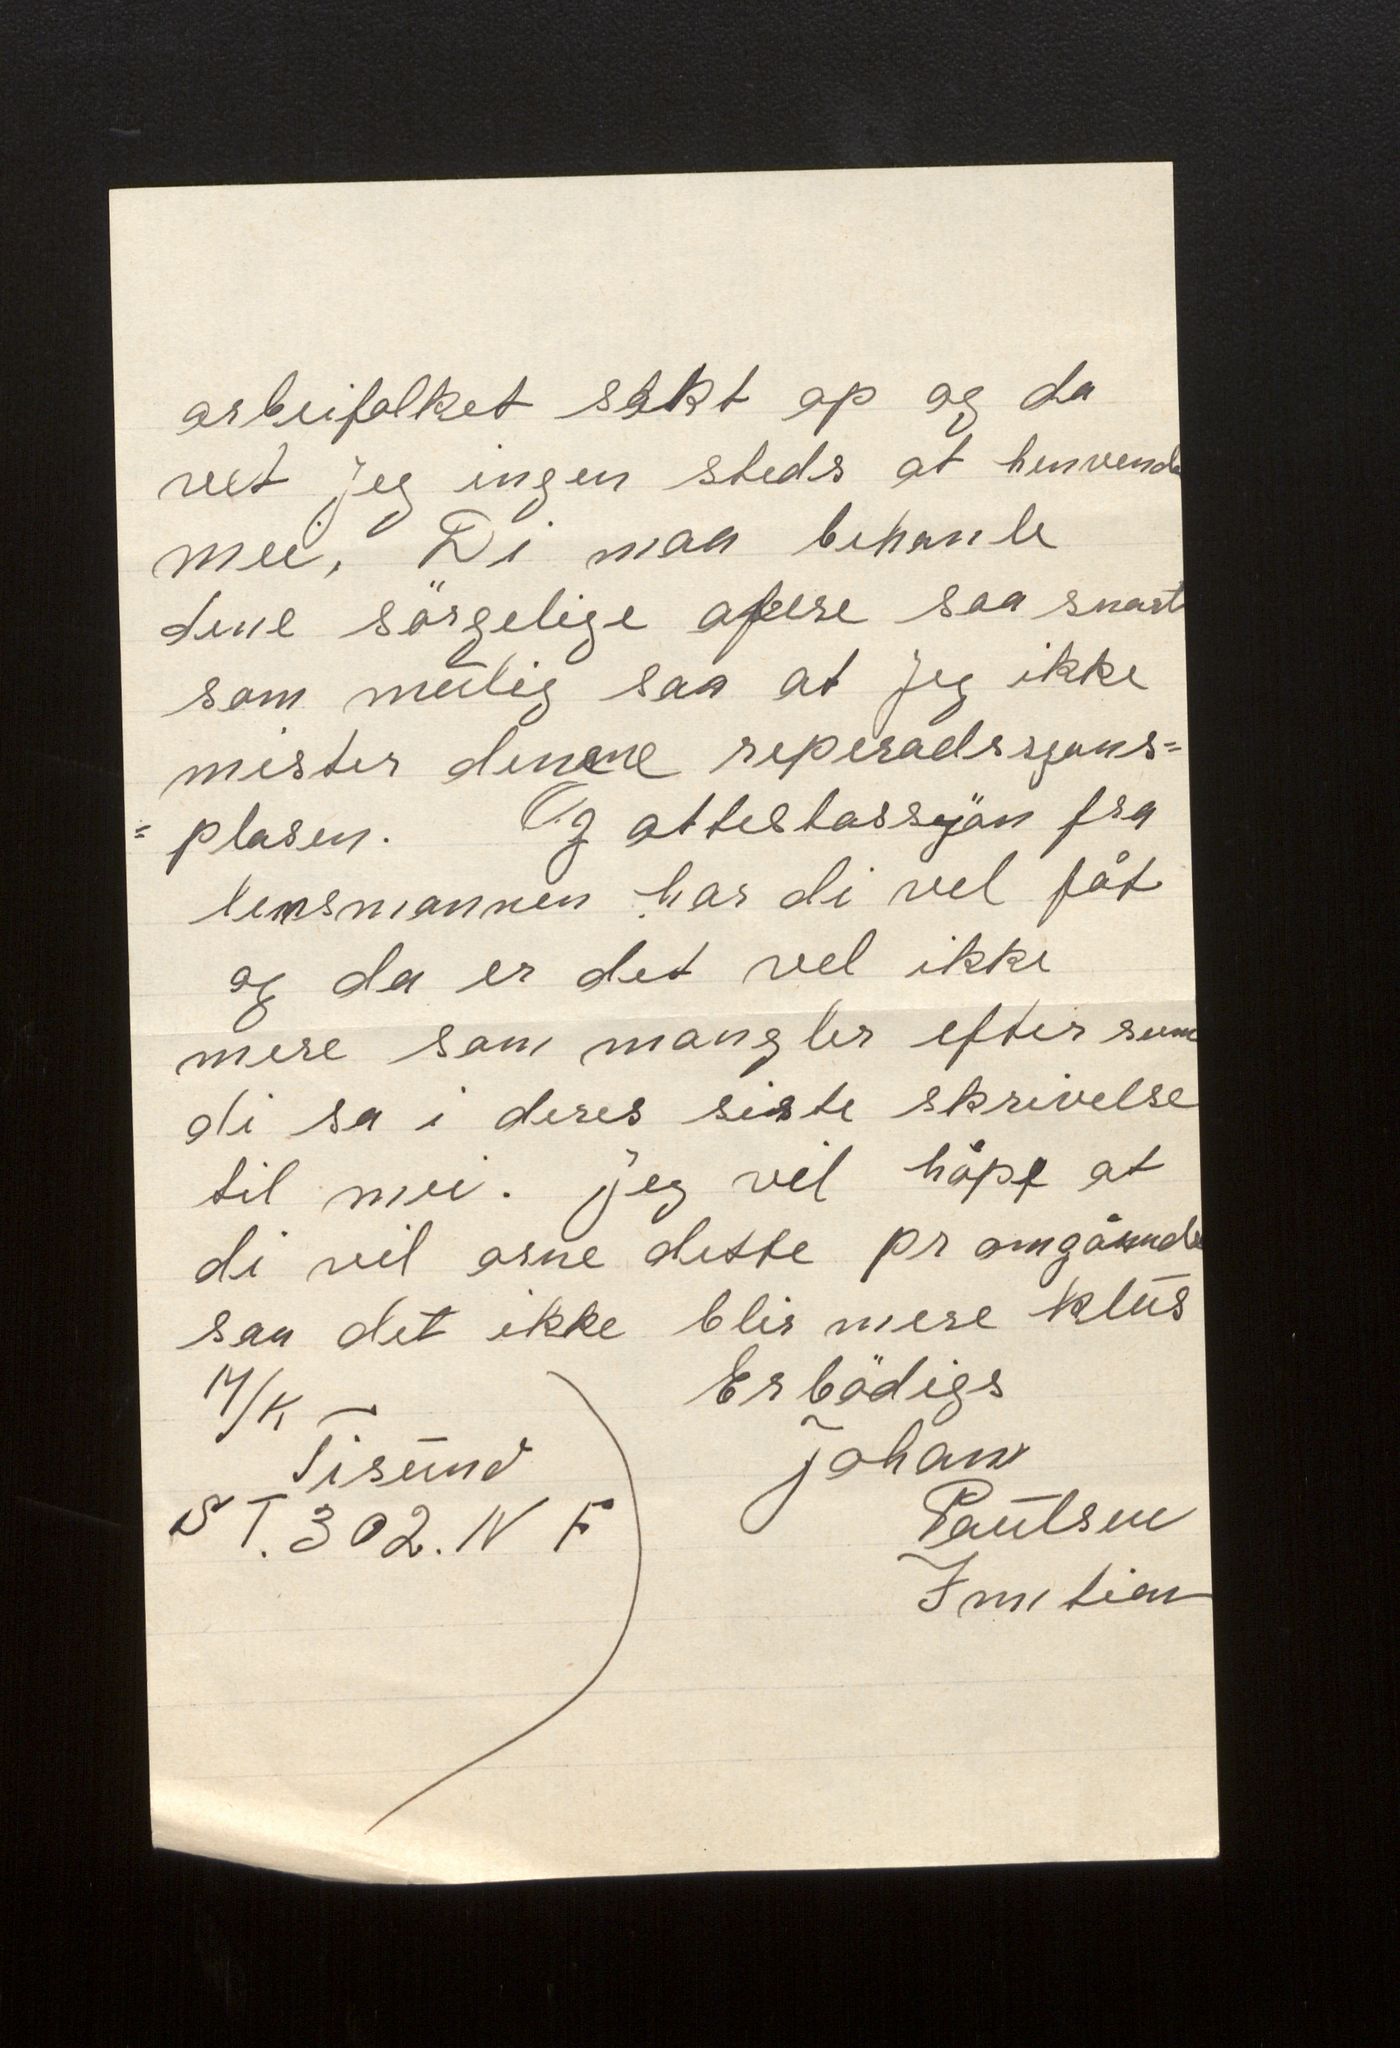 arbeifolket sakt op og da
vet jeg ingen steds at henvende
mei, Di maa behanle
dene sörgelige afere saa snart
som mulig saa at jeg ikke
mister denne reperadssjons=
=plasen. Og attestassjön fra
lensmannen har di vel fåt
og da er det vel ikke
mere som mangler efter som
di sa i deres siste skrivelse
til mei. jeg vil håpe at
di vil orne dette pr omgånnde
saa det ikke blir mere klus
M/K Erbödigs
Tisund johan
ST. 302. N F Paulsen